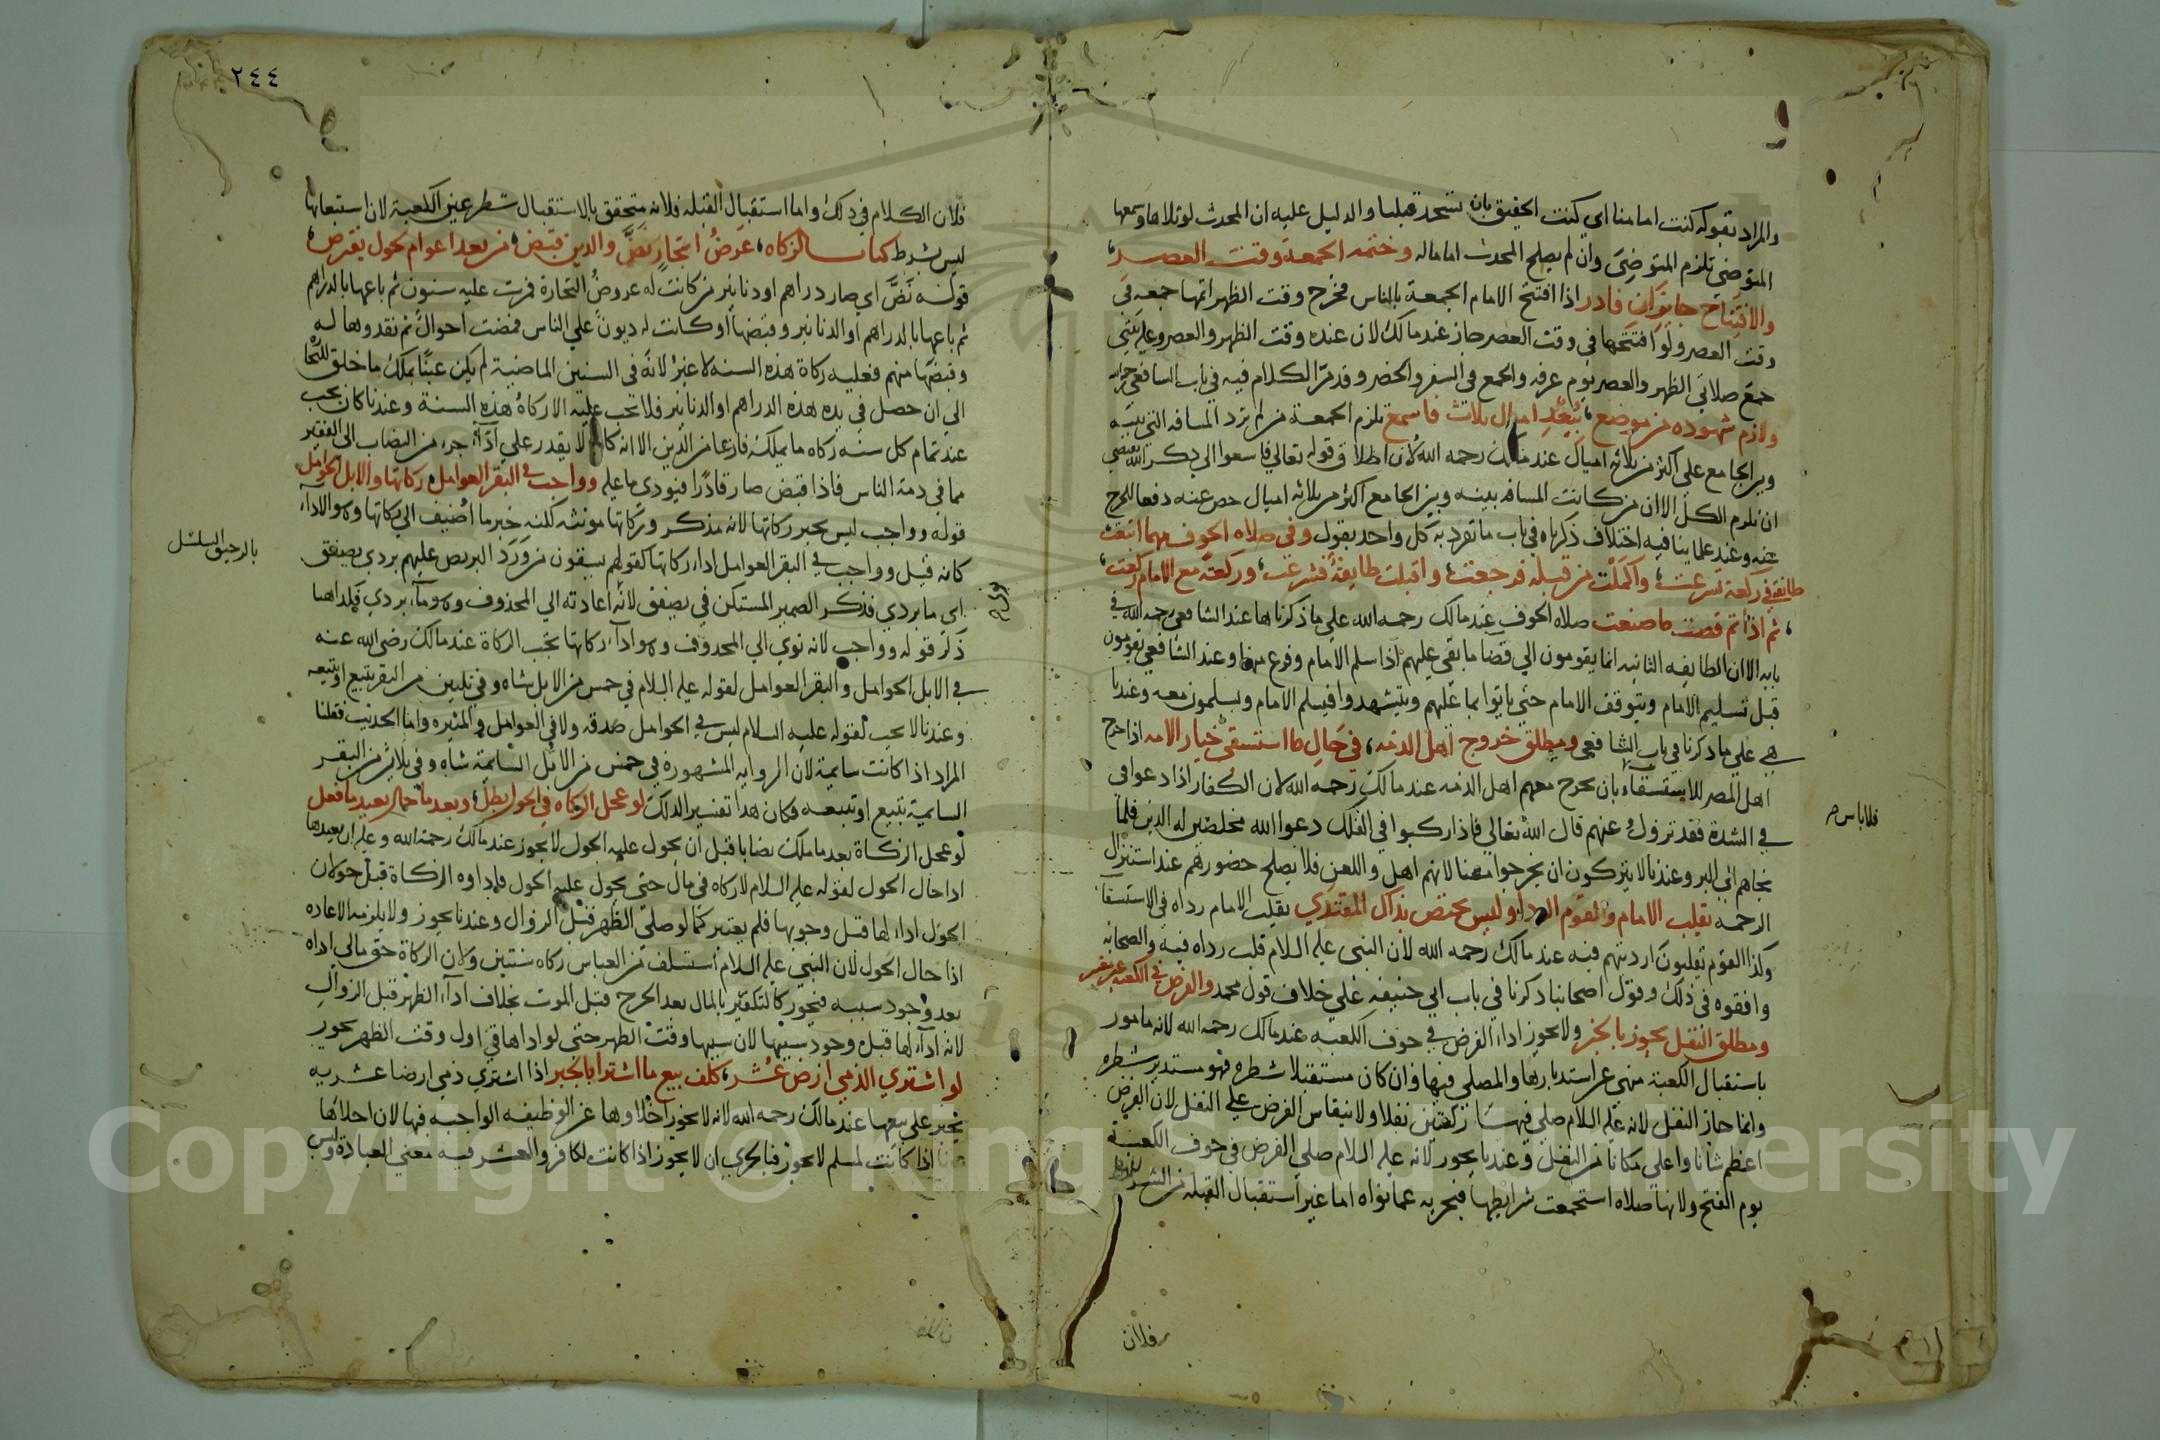 والمراد بقوله كنت امامنا اي كنت الحقيق بان تسجد قبلنا والدليل عليه ان المحدث لو تلاها وسمعها
المتوضي تلزم المتوضي وان لم يصلح المحدث اماما له وختمه الجمعة وقت العصر
والافتتاح جايزان فادر اذا افتتح الامام الجمعة بالناس فخرج وقت الظهر اتمها جمعه في
وقت العصر ولو افتتحها في وقت العصر جاز عند مالك لان عنده وقت الظهر والعصر وعليه يبتني
جمع صلاتي الظهر والعصر يوم عرفه والجمع في السفر والحضر وقد مر الكلام فيه في باب الشافعي
ولازم شهوده من موضع بُعّد اميال ثلاث فاسمع تلزم الجمعة من لم تزد المسافه التي بينه
وبين الجامع علي اكثر من ثلاثه اميال عند مالك رحمه الله لان اطلاق قوله تعالي فاسعوا الي ذكر الله يقتضي
ان تلزم الكل الا ان من كانت المسافه بينه وبين الجامع اكثر من ثلاثه اميال خص عنه دفعا للحرج
عنه وعند علماينا فيه اختلاف ذكرناه في باب ما تفرد به كل واحد بقول وفي صلاه الخوف مهما اتفقت
طايفة في ركعة تسرعت واكملت من قبله فرجعت واقبلت طايفة فشرعت وركعة مع الامام ركعت
ثم اذا اتم قضت ما صنعت صلاه الخوف عند مالك رحمه الله علي ما ذكرناها عند الشافعي رحمه الله في
بابه الا ان الطايفه الثانيه انما يقومون الي قضا ما بقي عليهم اذا سلم الامام وفرغ منها وعند الشافعي يقومون
قبل تسليم الامام ويتوقف الامام حتي ياتوا بما عليهم ويتشهدوا فيسلم الامام ويسلمون معه وعندنا
هي علي ما ذكرنا في باب الشافعي ومطلق خروج اهل الذمه في حال ما استسقي خيار الامه اذا خرج
اهل المصر للاستسقاء بان يخرج معهم اهل الذمه عند مالك رحمه الله لان الكفار اذا دعوا في
في الشدة فقد تزول عنهم قال الله تعالي فاذا ركبوا في الفلك دعوا الله مخلصين له الدين فلما
نجاهم الي البر وعندنا لا يتركون ان يخرجوا معنا لانهم اهل واللعن فلا يصلح حضورهم عند استنزال
الرحمه تقليب الامام والقوم الردا وليس يختص بذاك المقتدي يقلب الامام رداه في الاستسقا
وكذا القوم يقلبون ارديتهم فيه عند مالك رحمه الله لان النبي عليه السلام قلب رداه فيه والصحابه
وافقوه في ذلك وقول اصحابنا ذكرنا في باب ابي حنيفه علي خلاف قول محمد والفرض في الكعبه غير
ومطلق النفل يجوز بالخبر ولا يجوز اداء الفرض في جوف الكعبه عند مالك رحمه الله لانه مامور
باستقبال الكعبة منهي عن استدبارها والمصلي فيها وان كان مستقبلا شطره فهو مستدبر شطره
وانما جاز النفل لانه عليه السلام صلي فيها ركعتين نفلا ولا ينقاس الفرض علي النفل لان الفرض
اعظم شانا واعلي مكانا من النفل وعندنا يجوز لانه عليه السلام صلي الفرض في جوف الكعبة
يوم الفتح ولانها صلاه استجمعت شرايطها فتجزيه عما نواه اما غير استقبال القبله من الشرايط
فلا باس
فلان
٢٤٤
فلان الكلام في ذلك واما استقبال القبله فلانه متحقق بالاستقبال شطر عين الكعبة لان استيعابها
ليس بشرط كتاب الزكاه عرض اتجار نض والدين قبض من بعد اعوام لحول يفترض
قوله نضّ اي صار دراهم او دنانير من كانت له عروض التجارة فمرت عليه سنون ثم باعها بالدراهم
ثم باعها بالدراهم او الدنانير وقبضها او كانت له ديون علي الناس فمضت احوال ثم نقدوها له
وقبضها منهم فعليه زكاة هذه السنه لا غير لانه في السنين الماضية لم يكن عينا يملك ما خلق
الي ان حصل في يده هذه الدراهم او الدنانير فلا تجب عليه الا زكاة هذه السنة وعندنا كان يجب
عند تمام كل سنه زكاه ما يملك فارغا من الدين الا انه كان لا يقدر علي اداء جزء من النصاب الي الفقير
مما في ذمة الناس فاذا قبض صار قادرا فيودي ما عليه وواجب في البقر العوامل زكاتها والابل الحوامل
قوله وواجب ليس بخبر زكاتها لانه مذكر وزكاتها مونثه لكنه خبر ما اضيف الي زكاتها وهو الاداء
كانه قيل وواجب في البقر العوامل اداء زكاتها كقولهم يسقون من ورد البريص عليهم بردي يصفق
بالرحيق السلسل
اي ما بردي فذكر الضمير المستكن في يصفق لانه اعادته الي المحذوف وهو ماء بردي فكذا هنا
ذكر قوله وواجب لانه نوي الي المحذوف وهو اداء زكاتها تجب الزكاة عند مالك رضي الله عنه
في الابل الحوامل والبقر العوامل لقوله عليه السلام في خمس من الابل شاه وفي ثلثين من البقر تبيع او تبيعه
وعندنا لا يجب لقوله عليه السلام ليس في الحوامل صدقه ولا في العوامل والمثيره واما الحديث فقلنا
المراد اذا كانت سايمة لان الروايه المشهورة في خمس من الابل السايمة شاه وفي ثلاثين من البقر
السايمة تبيع او تبيعه فكان هذا تفسيرا لذلك لو عجل الزكاه في الحول بطل وبعد ما حال يعيد ما فعل
لو عجل الزكاة بعد ما ملك نصابا قبل ان يحول عليه الحول لا يجوز عند مالك رحمه الله وعليه ان يعيدها
اذا حال الحول لقوله عليه السلام لا زكاه في مال حتي يحول عليه الحول فاداوه الزكاة قبل حولان
الحول اداء لها قبل وجوبها فلم يعتبر كما لو صلي الظهر قبل الزوال وعندنا يجوز ولا يلزمه الاعاده
اذا حال الحول لان النبي عليه السلام استسلف من العباس زكاه سنتين ولان الزكاة حق مالي اداه
بعد وجود سببه فيجوز كالتكفير بالمال بعد الجرح قبل الموت بخلاف اداء الظهر قبل الزوال
لانه اداء لها قبل وجود سببها لان سببها وقت الظهر حتي لو اداها في اول وقت الظهر يجوز
لو اشتري الذمي ارض عشر كلف بيع ما اشترا بالجبر اذا اشتري ذمي ارضا عشريه
يجبر علي بيعها عند مالك رحمه الله لانه لا يجوز اخلاوها عن الوظيفه الواجبه فيها لان اخلاها
اذا كانت لمسلم لا يجوز فبالحري ان لا يجوز اذا كانت لكافر والعشر فيه معني العبادة وليس
Copyright © King Saud University